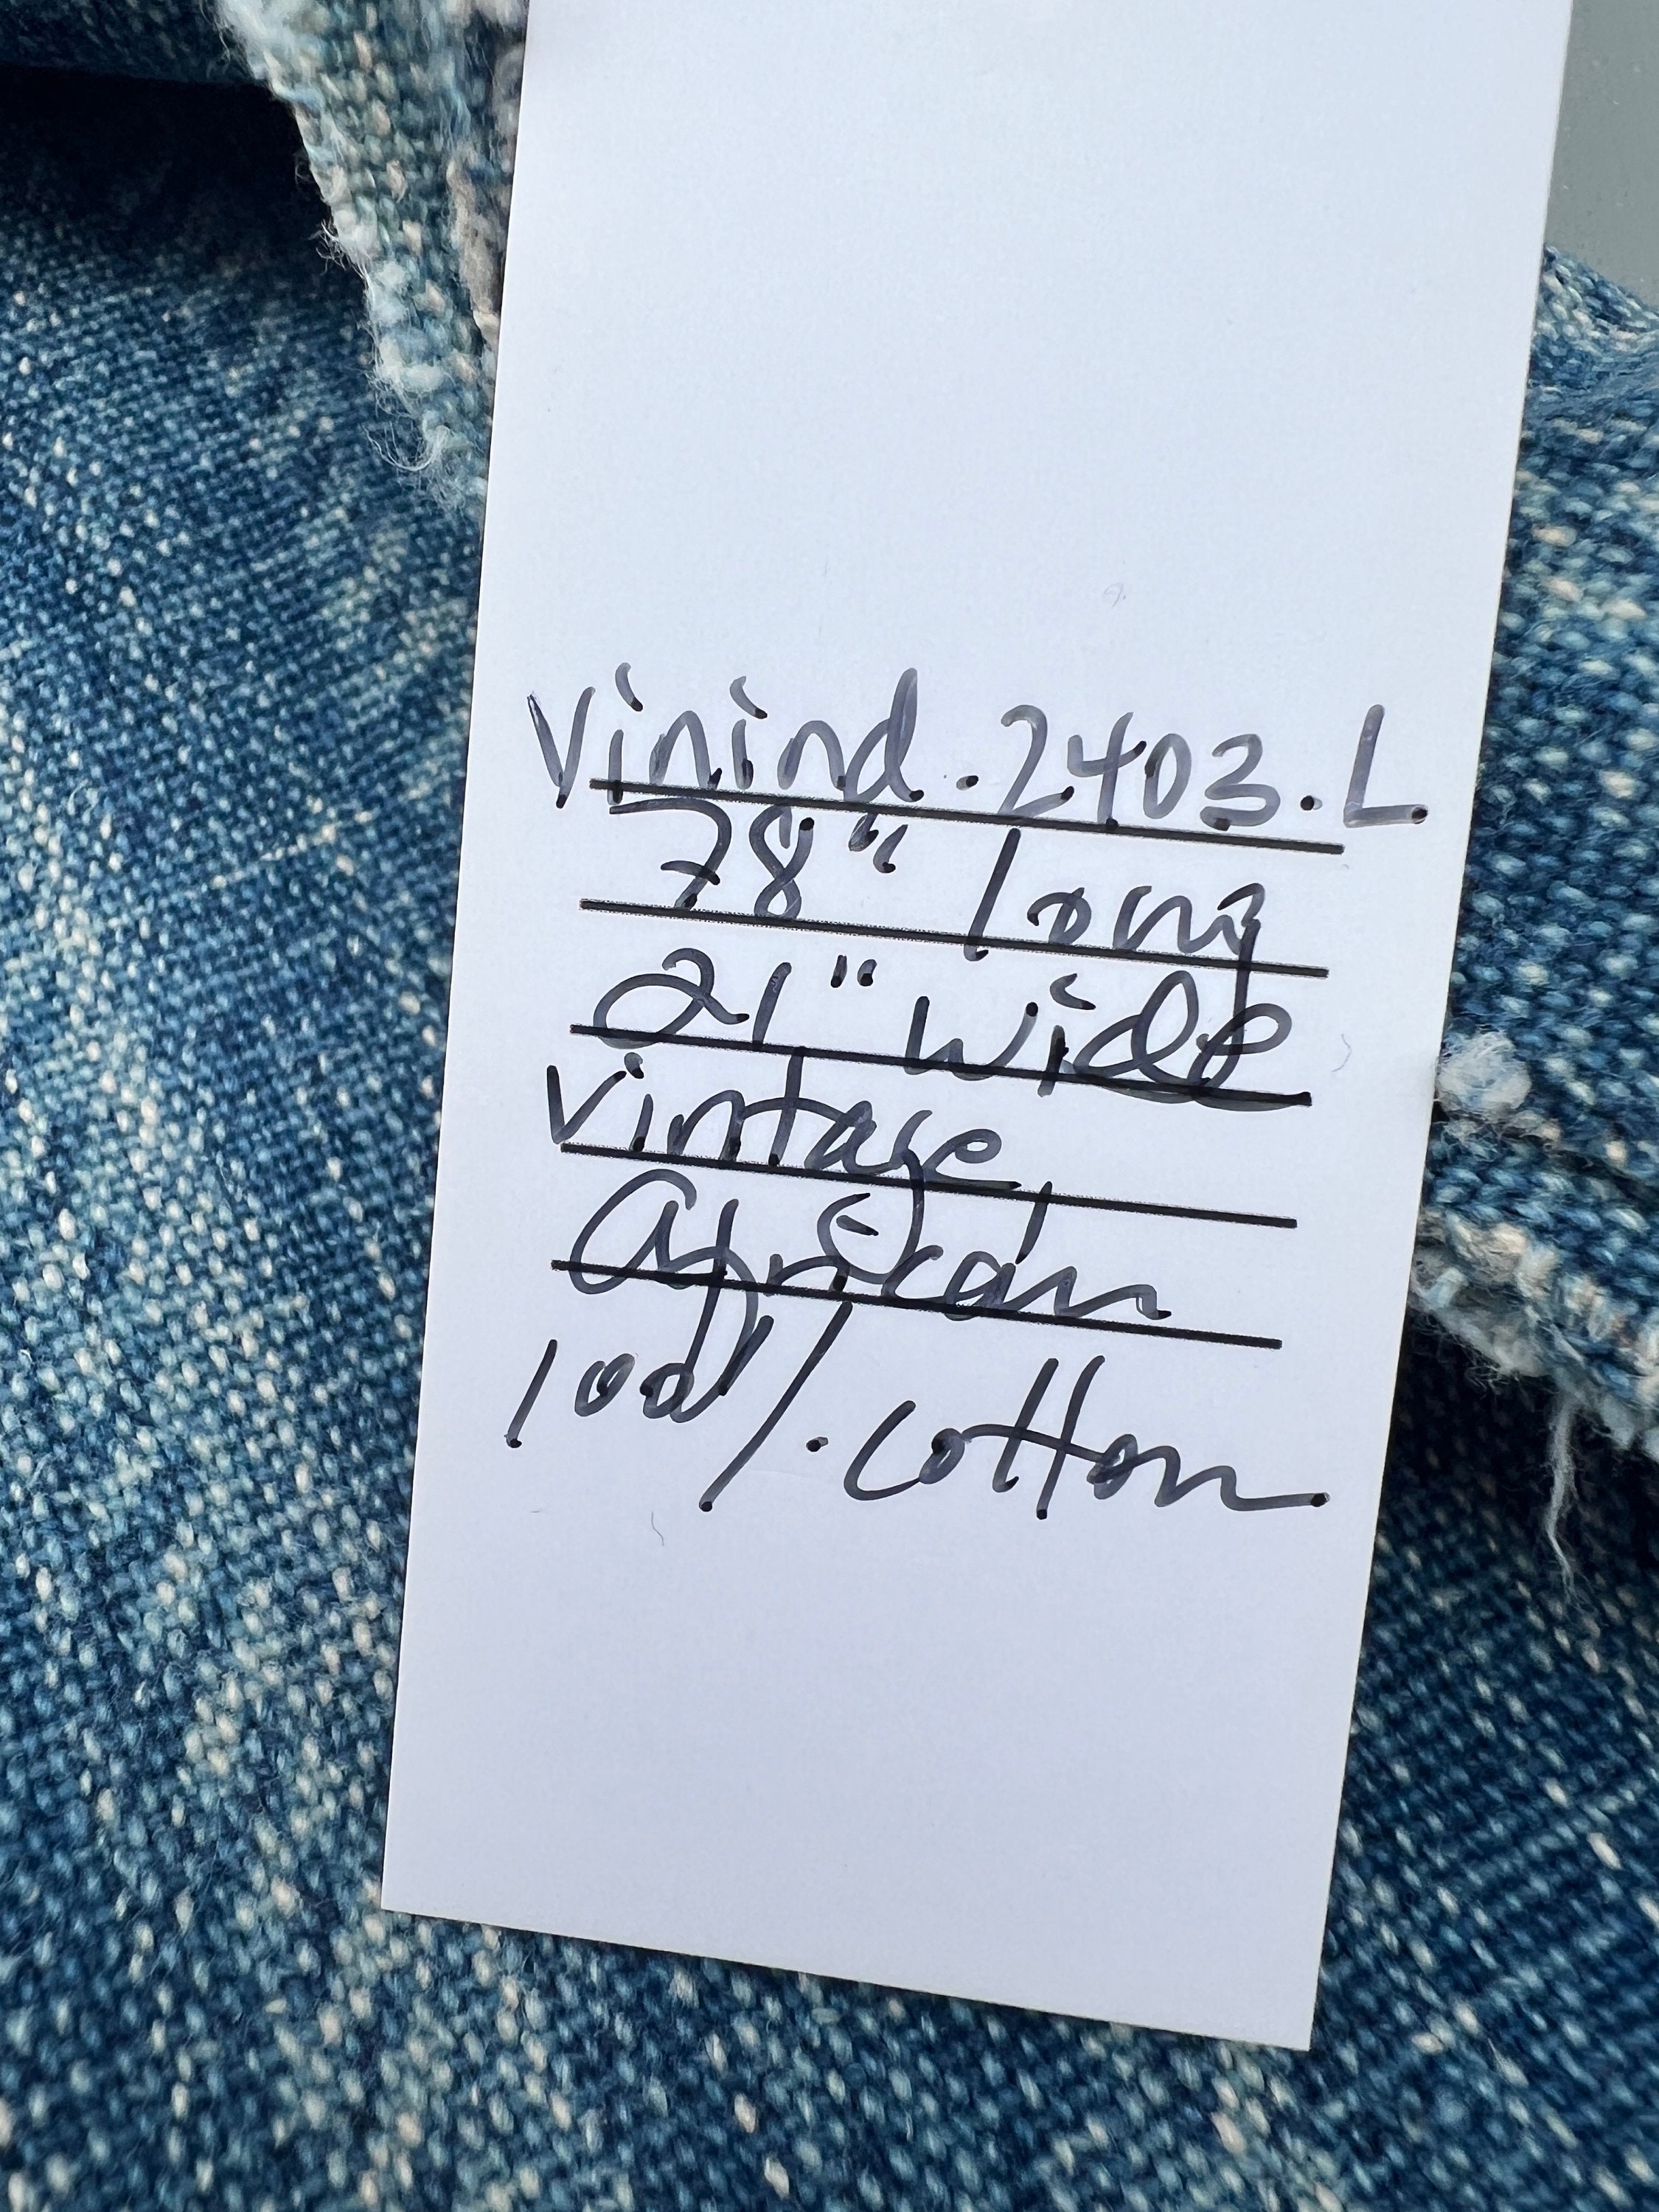 Vinind.2403.L
78" long
21" wide
Vintage
African
100%.cotton